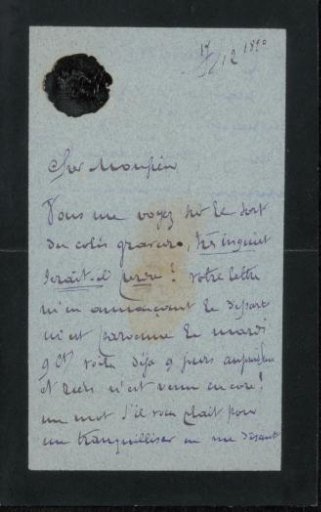 17/12 1890
Cher Monsieur
Vous me voyez sur le sort
du colis gravures, très inquiet
serait-il perdu ? Votre lettre
m'en annonçant le départ
m'est parvenue le mardi
9 ct voilà déjà 9 jours aujourd'hui
et rien n'est venu encore !
un mot s'il vous plait pour
me tranquilliser en me disant